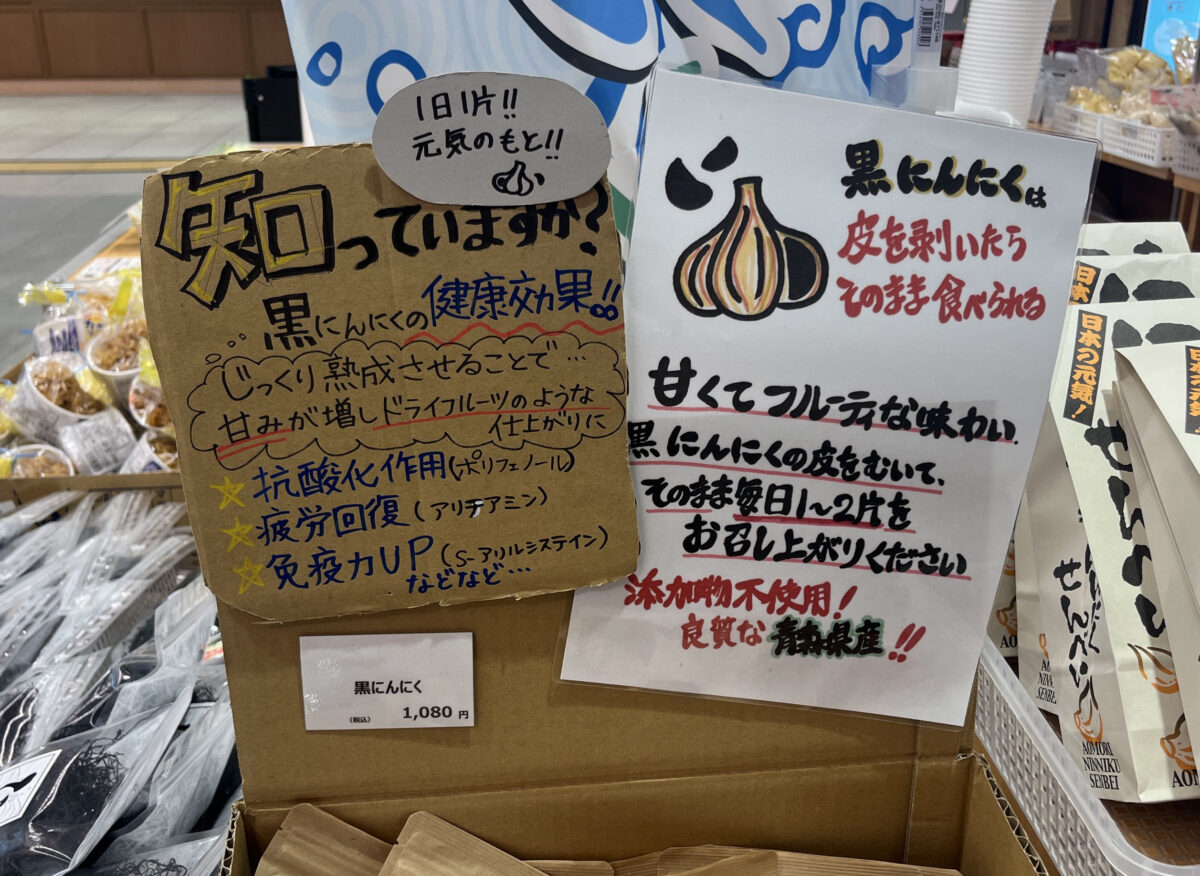 1日1片!!
元気のもと!!
知っていますか?
黒にんにくの健康効果!!
じっくり熟成させることで…
甘みが増しドライフルーツのような
仕上がりに
抗酸化作用(ポリフェノール)
疲労回復(アリチアミン)
免疫力UP(S-アリルシステイン)
などなど…
黒にんにく
(税込) 1,080 円
黒にんにくは
皮を剥いたら
そのまま食べられる
甘くてフルーティな味わい.
黒にんにくの皮をむいて、
そのまま毎日1~2片を
お召し上がりください
添加物不使用!
良質な青森県産!!
日本の元気!
せんべい
AOMORI
NINNIKU
SENBEI